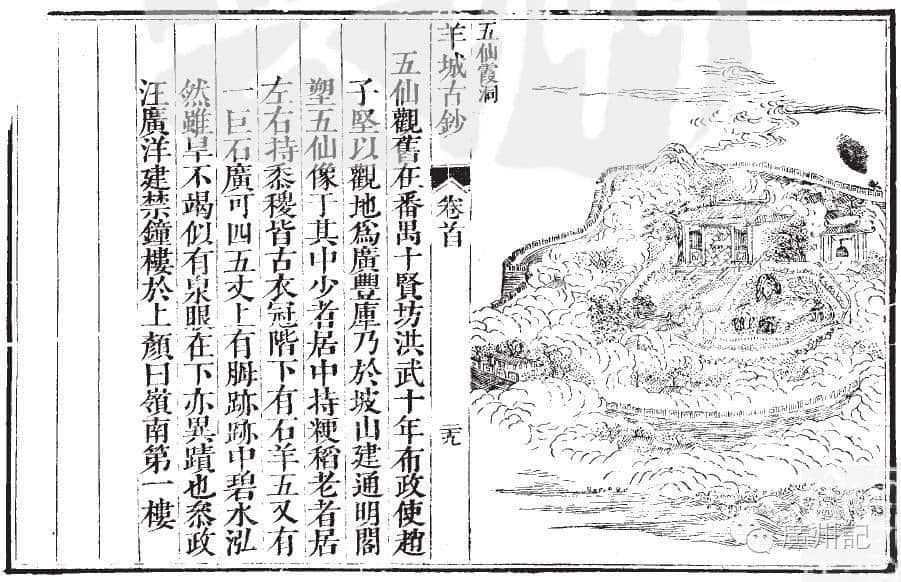 五仙霞洞
羊城古鈔 卷首
五仙觀舊在番禺十賢坊洪武十年布政使趙
子堅以觀地爲廣豐庫乃於坡山建通明閣
塑五仙像于其中少者居中持粳稻老者居
左右持黍稷皆古衣冠階下有石羊五又有
一巨石廣可四五丈上有胟跡跡中碧水泓
然雖旱不竭似有泉眼在下亦異蹟也叅政
汪廣洋建禁鐘樓於上顏曰嶺南第一樓
廣州記